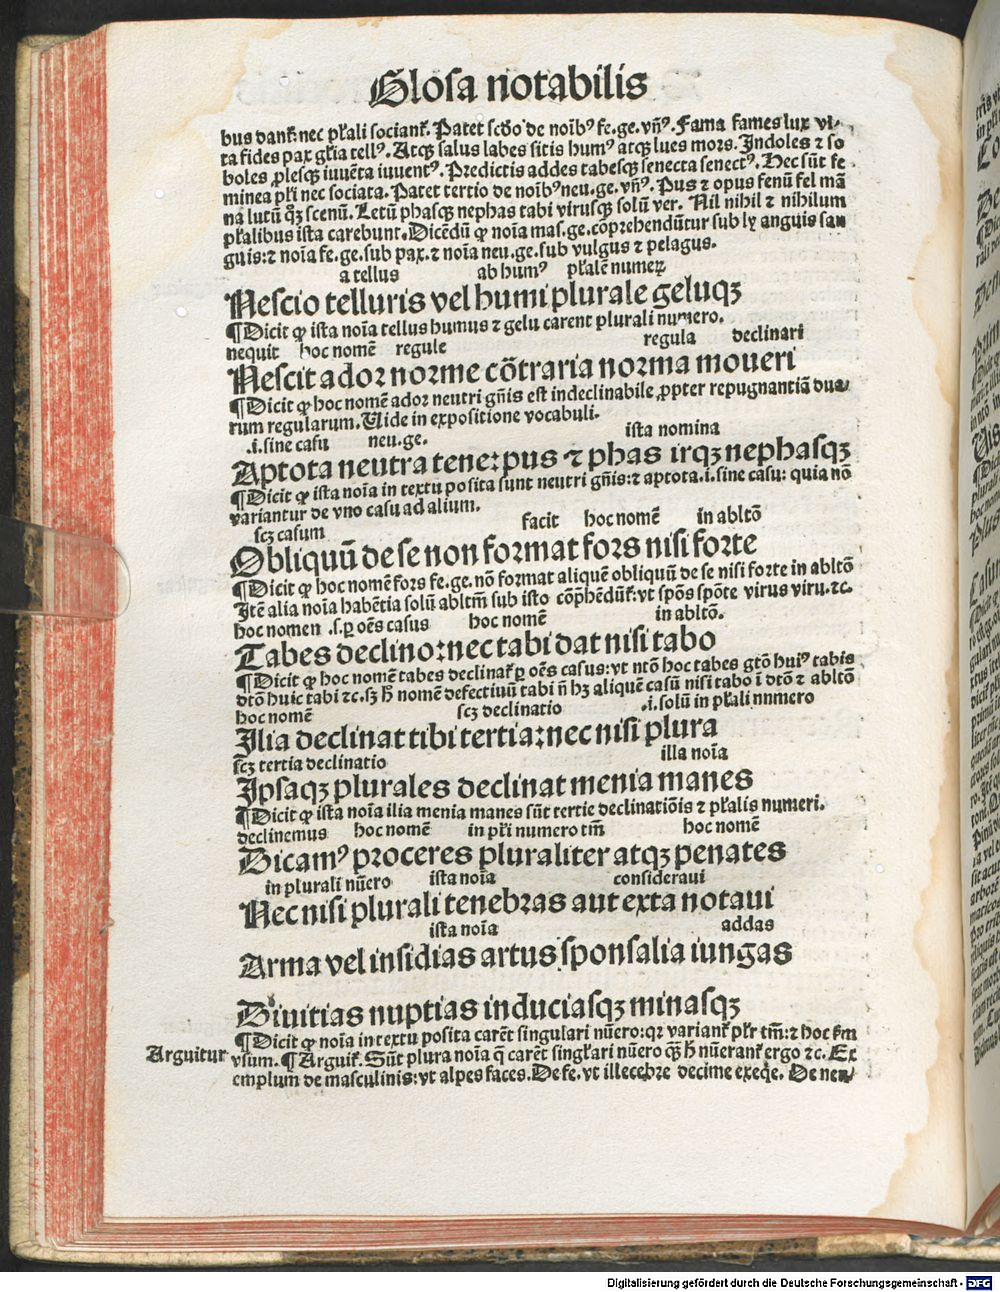 Glosa notabilis
bus dant̄ nec pl̄ali sociant̄. Patet scd̄o de noīb⁹ fe.ge.vn̄⁹. Fama fames lux vi⸗
ta fides pax gl̄ia tell⁹. Atqꝫ salus labes sitis hum⁹ atqꝫ lues mors. Indoles ⁊ so
boles ꝓlesqꝫ iuuēta iuuent⁹. Predictis addes tabesqꝫ senecta senect⁹. Hec sūt fe
minea pl̄i nec sociata. Patet tertio de noīb⁹ neu.ge. vn̄⁹. Pus ⁊ opus fenū fel mā
na lutū qꝫ scenū. Letū phasqꝫ nephas tabi virusqꝫ solū ver. Nil nihil ⁊ nihilum
pl̄alibus ista carebunt. Dicēdū ꝙ noīa mas.ge.cōprehendūtur sub ly anguis san
guis:⁊ noīa fe.ge.sub pax.⁊ noīa neu.ge.sub vulgus ⁊ pelagus.
a tellus ab hum⁹ pl̄alē numeꝝ
Nescio telluris vel humi plurale geluqꝫ
¶Dicit ꝙ ista noīa tellus humus ⁊ gelu carent plurali numero.
nequit hoc nomē regule regula declinari
Nescit ador norme cōtraria norma moueri
¶Dicit ꝙ hoc nomē ador neutri gn̄is est indeclinabile ꝓpter repugnantiā dua⸗
rum regularum. Uide in expositione vocabuli.
.i.sine casu neu.ge. ista nomina
Aptota neutra tene:pus ⁊ phas irqꝫ nephasqꝫ
¶Dicit ꝙ ista noīa in textu posita sunt neutri gn̄is:⁊ aptota.i.sine casu: quia nō
variantur de vno casu ad alium.
scꝫ casum facit hoc nomē in abltō
Obliquū de se non format fors nisi forte
¶Dicit ꝙ hoc nomē fors fe.ge.nō format aliquē obliquū de se nisi forte in abltō
Itē alia noīa habētia solū abltm̄ sub isto cōp̄hēdūt̄:vt spōs spōte virus viru.⁊c.
hoc nomen .s.ꝑ oēs casus hoc nomē in abltō.
Tabes declino:nec tabi dat nisi tabo
¶Dicit ꝙ hoc nomē tabes declinat̄ ꝑ oēs casus:vt ntō hoc tabes gtō hui⁹ tabis
dtō huic tabi ⁊c.sꝫ h̄ nomē defectiuū tabi n̄ hꝫ aliquē casū nisi tabo ī dtō ⁊ abltō
hoc nomē scꝫ declinatio .i.solū in pl̄ali nnmero
Ilia declinat tibi tertia:nec nisi plura
scꝫ tertia declinatio illa noīa
Ipsaqꝫ plurales declinat menia manes
¶Dicit ꝙ ista noīa ilia menia manes sūt tertie declinatiōis ⁊ pl̄alis numeri.
declinemus hoc nomē in pl̄i numero tm̄ hoc nomē
Dicam⁹ proceres pluraliter atqꝫ penates
in plurali nūero ista noīa consideraui
Nec nisi plurali tenebras aut exta notaui
ista noīa addas
Arma vel insidias artus sponsalia iungas
Diuitias nuptias induciasqꝫ minasqꝫ
¶Dicit ꝙ noīa in textu posita carēt singulari nūero:qꝛ variant̄ pl̄r tm̄:⁊ hoc ẜm
Arguitur
vsum. ¶Arguit̄. Sūt plura noīa q̄ carēt singl̄ari nūero qꝫ h̄ nūerant̄ ergo ⁊c. Ex
emplum de masculinis:vt alpes faces. De fe. vt illecebre decime exeqe. De neu⸗
Digitalisierung gefördert durch die Deutsche Forschungsgemeinschaft - DFG